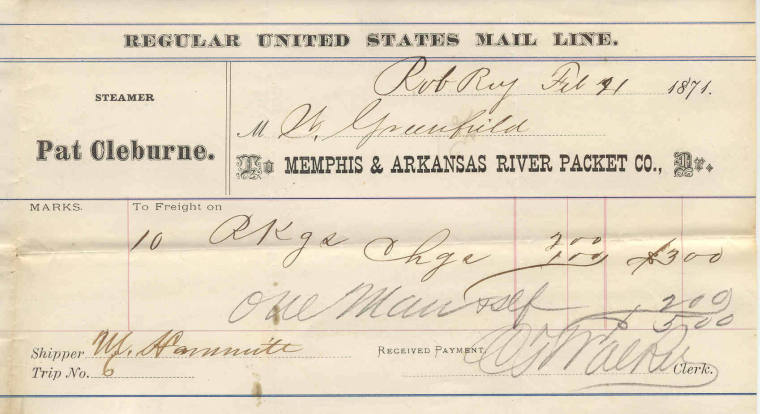 REGULAR UNITED STATES MAIL LINE.
Rob Roy Feb 21 1871.
STEAMER
Pat Cleburne.
M W. Greenfield
To MEMPHIS & ARKANSAS RIVER PACKET CO., Dr.
MARKS. To Freight on
10 Pkgs Chgs 2 00
1 00 $3 00
One Man & self 2 00
5 00
Shipper
Received Payment, Walker Clerk.
Trip No. 6